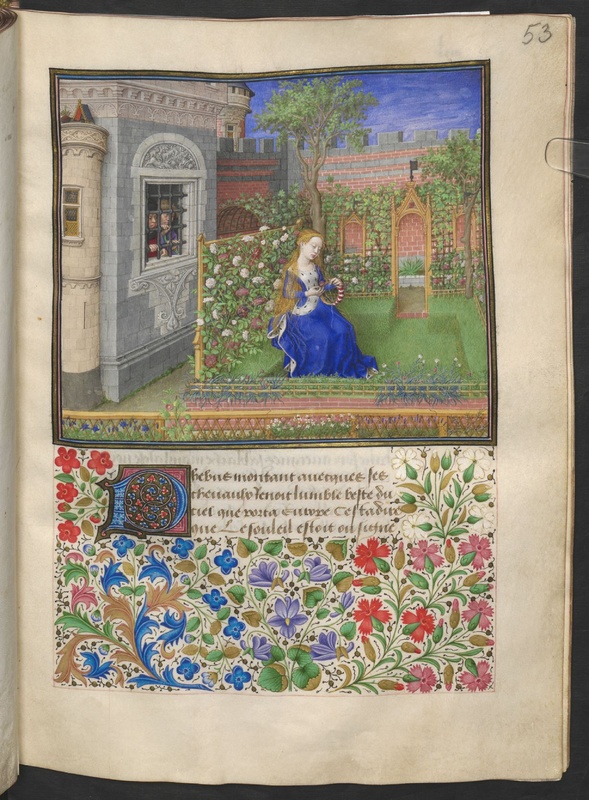 53
Phebus montant auecques ses
cheuaulx tenoit lumble beste du
ciel que porta europe Cestadire
que Le souleil estoit ou signe